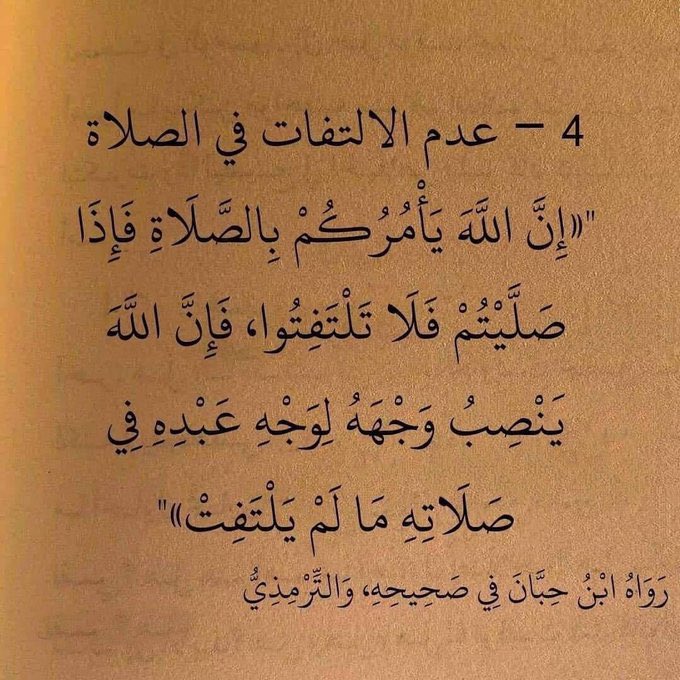 4 – عدم الالتفات في الصلاة
"((إِنَّ اللَّهَ يَأْمُرُكُمْ بِالصَّلَاةِ فَإِذَا
صَلَّيْتُمْ فَلَا تَلْتَفِتُوا، فَإِنَّ اللَّهَ
يَنْصِبُ وَجْهَهُ لِوَجْهِ عَبْدِهِ فِي
صَلَاتِهِ مَا لَمْ يَلْتَفِتْ))"
رَوَاهُ ابْنُ حِبَّانَ فِي صَحِيحِهِ، وَالتِّرْمِذِيُّ